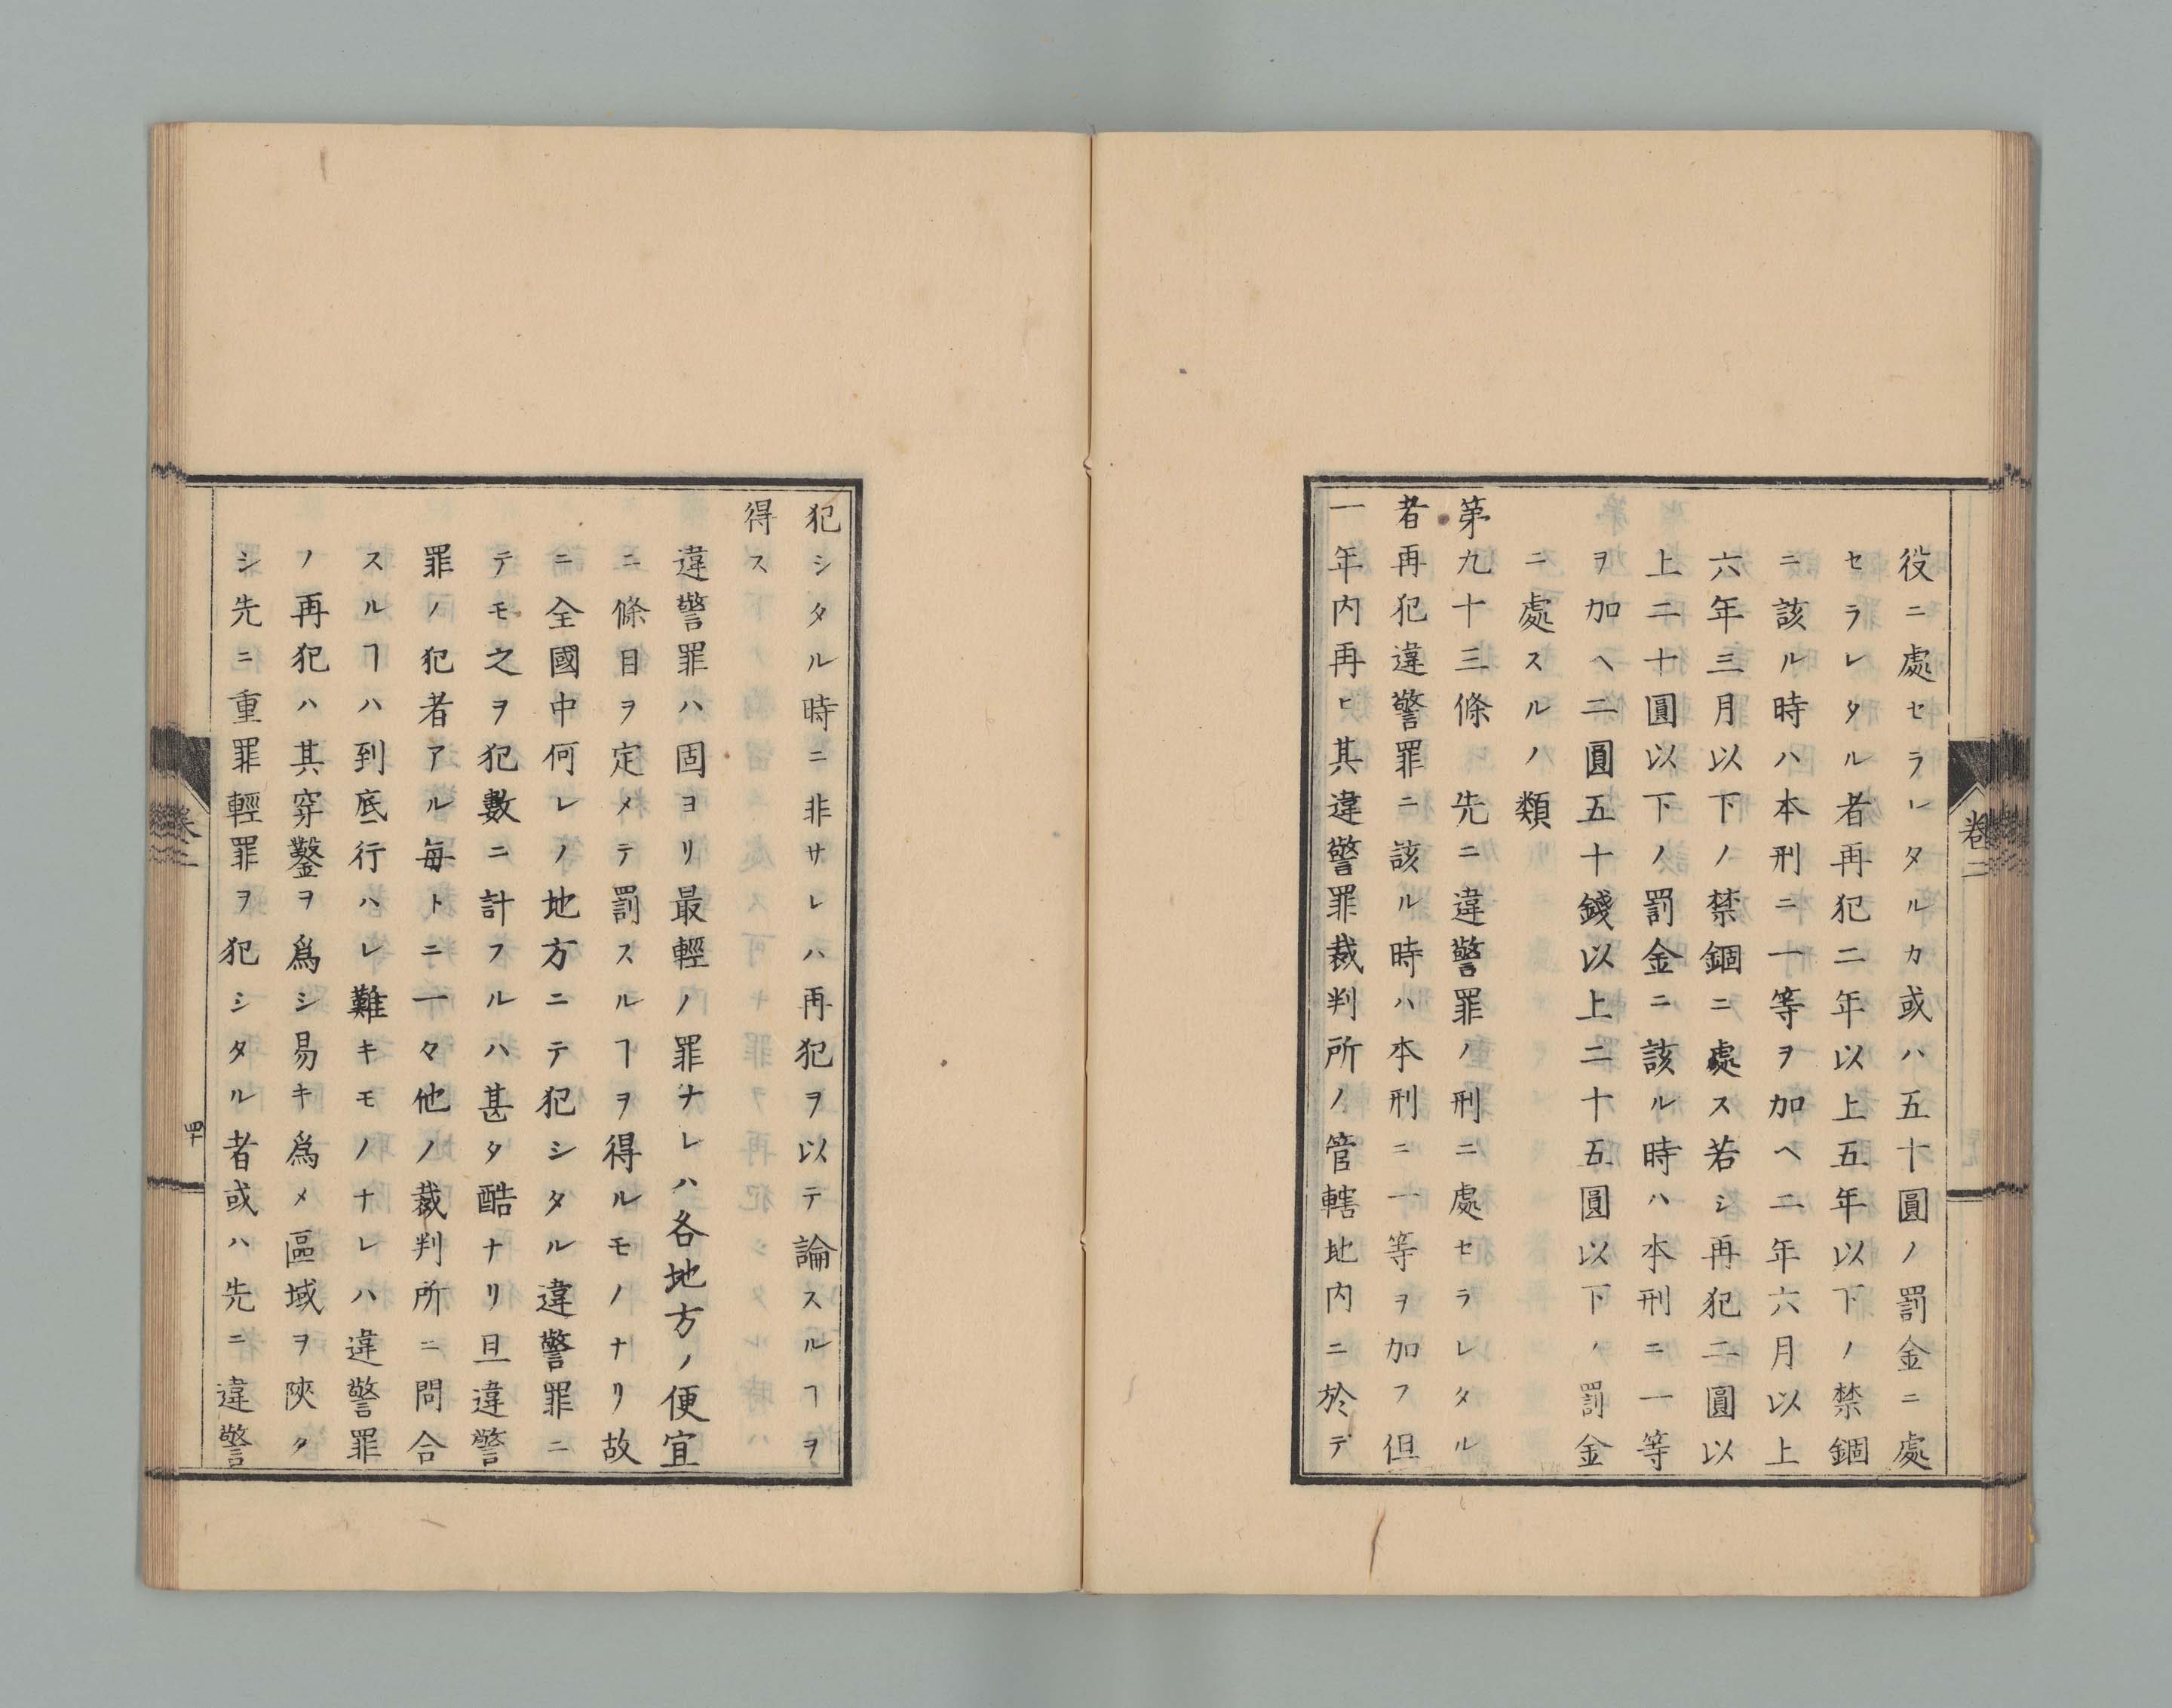 役ニ處セラレタルカ或ハ五十圓ノ罰金ニ處
セラレタル者再犯二年以上五年以下ノ禁錮
ニ該ル時ハ本刑ニ一等ヲ加ヘ二年六月以上
六年三月以下ノ禁錮ニ處ス若シ再犯二圓以
上二十圓以下ノ罰金ニ該ル時ハ本刑ニ一等
ヲ加ヘ二圓五十錢以上二十五圓以下ノ罰金
ニ處スルノ類
第九十三條 先ニ違警罪ノ刑ニ處セラレタル
者再犯違警罪ニ該ル時ハ本刑ニ一等ヲ加フ但
一年内再ヒ其違警罪裁判所ノ管轄地内ニ於デ
卷二
犯シタル時ニ非サレハ再犯ヲ以テ論スルヿヲ
得ス
違警罪ハ固ヨリ最輕ノ罪ナレハ各地方ノ便宜
ニ條目ヲ定メテ罰スルヿヲ得ルモノナリ故
ニ全國中何レノ地方ニテ犯シタル違警罪ニ
テモ之ヲ犯數ニ計フルハ甚タ酷ナリ且違警
罪ノ犯者アル毎トニ一々他ノ裁判所ニ問合
スルヿハ到底行ハレ難キモノナレハ違警罪
ノ再犯ハ其穿鑿ヲ爲シ易キ爲メ區域ヲ陜ク
シ先ニ重罪輕罪ヲ犯シタル者或ハ先ニ違警
卷二
四十